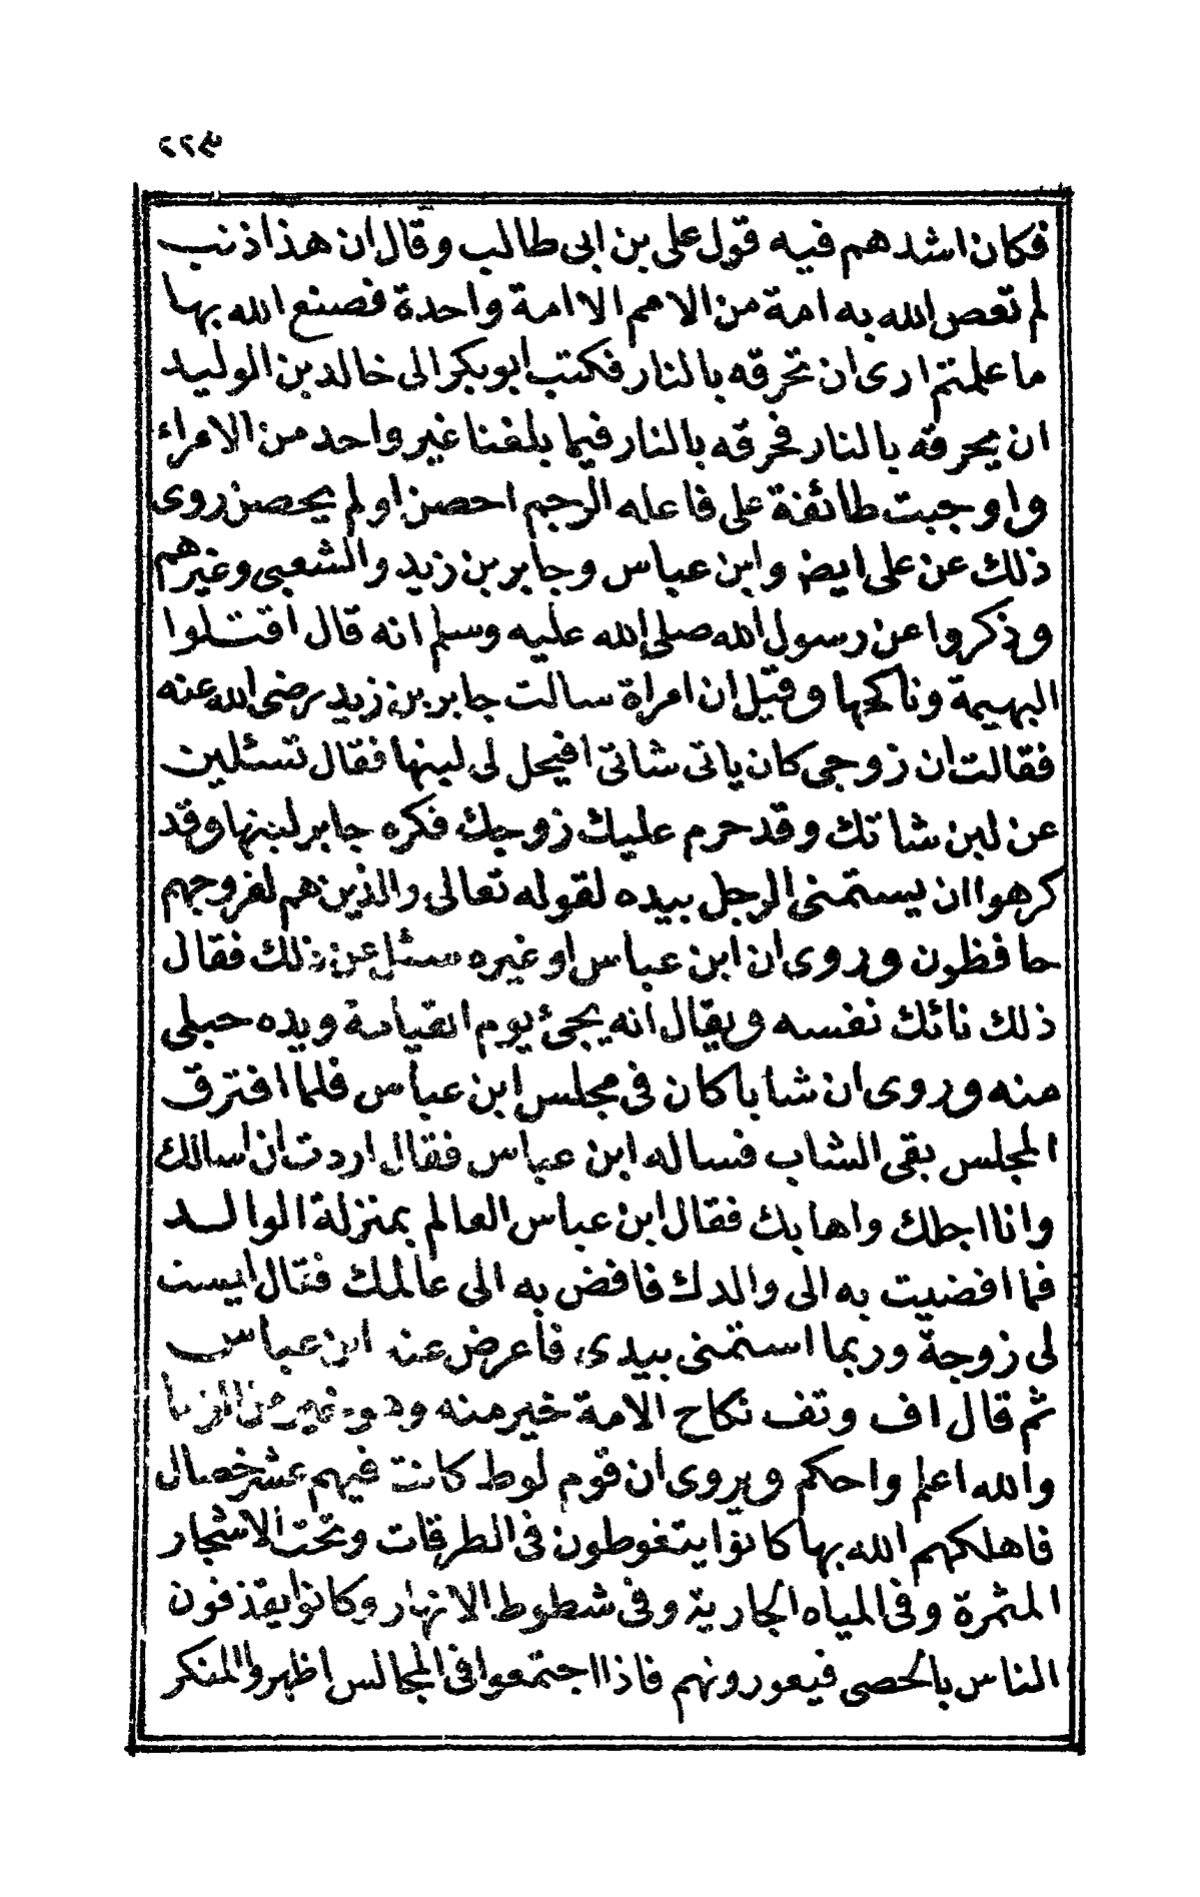 ٢٢٤
فكان اشدهم فيه قول على بن ابى طالب وقال ان هذا ذنب
لم تعص الله به امة من الامم الا امة واحدة فصنع الله بها
ما علمتم ارى ان تحرقه بالنار فكتب ابو بكر الى خالد بن الوليد
ان يحرقه بالنار فحرقه بالنار فيما بلغنا غير واحد من الامراء
واوجبت طائفة على فاعله الرجم احصن او لم يحصن روى
ذلك عن على ايض وابن عباس وجابر بن زيد والشعبى وغيرهم
وذكروا عن رسول الله صلى الله عليه وسلم انه قال اقتلوا
البهيمة وناكحها وقيل ان امراة سالت جابر بن زيد رضى الله عنه
فقالت ان زوجى كان ياتى شاتى افيحل لى لبنها فقال تسئلين
عن لبن شاتك وقد حرم عليك زوجك فكره جابر لبنها وقد
كرهوا ان يستمنى الرجل بيده لقوله تعالى والذين هم لفروجهم
حافظون وروى ان ابن عباس او غيره سئل عن ذلك فقال
ذلك نائك نفسه ويقال انه يجئ يوم القيامة ويده حبلى
منه وروى ان شابا كان فى مجلس ابن عباس فلما افترق
المجلس بقى الشاب فساله ابن عباس فقال اردت ان اسالك
وانا اجلك واهابك فقال ابن عباس العالم بمنزلة الوالد
فما افضيت به الى والدك فافض به الى عالمك فقال ليست
لى زوجة وربما استمنى بيدى فاعرض عنه ابن عباس
ثم قال اف وتف نكاح الامة خير منه وهو خير من الزنا
والله اعلم واحكم ويروى ان قوم لوط كانت فيهم عشر خصال
فاهلكهم الله بها كانوا يتغوطون فى الطرقات وتحت الاشجار
المثمرة وفى المياه الجارية وفى شطوط الانهار وكانوا يقذفون
الناس بالحصى فيعورونهم فاذا اجتمعوا فى المجالس اظهروا المنكر